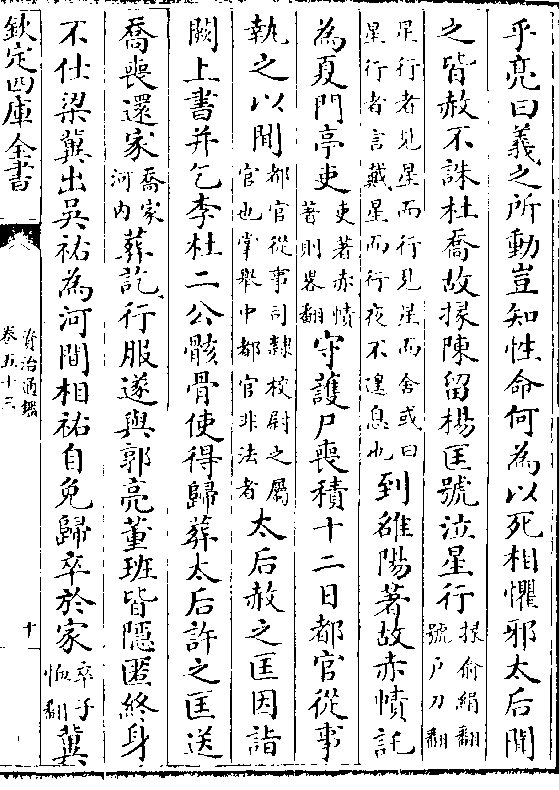 乎亮曰義之所動豈知性命何為以死相懼邪太后聞
之皆赦不誅杜喬故掾陳留楊匡號泣星行掾俞絹翻號户刀翻
星行者見星而行見星而舍或曰星行者言戴星而行夜不遑息也到雒陽著故赤幘託
為夏門亭吏吏著赤幘著則畧翻守護尸喪積十二日都官從事
執之以聞都官從事司隷校尉之屬官也掌舉中都官非法者太后赦之匡因詣
闕上書并乞李杜二公骸骨使得歸葬太后許之匡送
喬喪還家喬家河内葬訖行服遂與郭亮董班皆隱匿終身
不仕梁冀出吳祐為河間相祐自免歸卒於家卒子恤翻冀
欽定四庫全書
資治通鑑
卷五十三
十